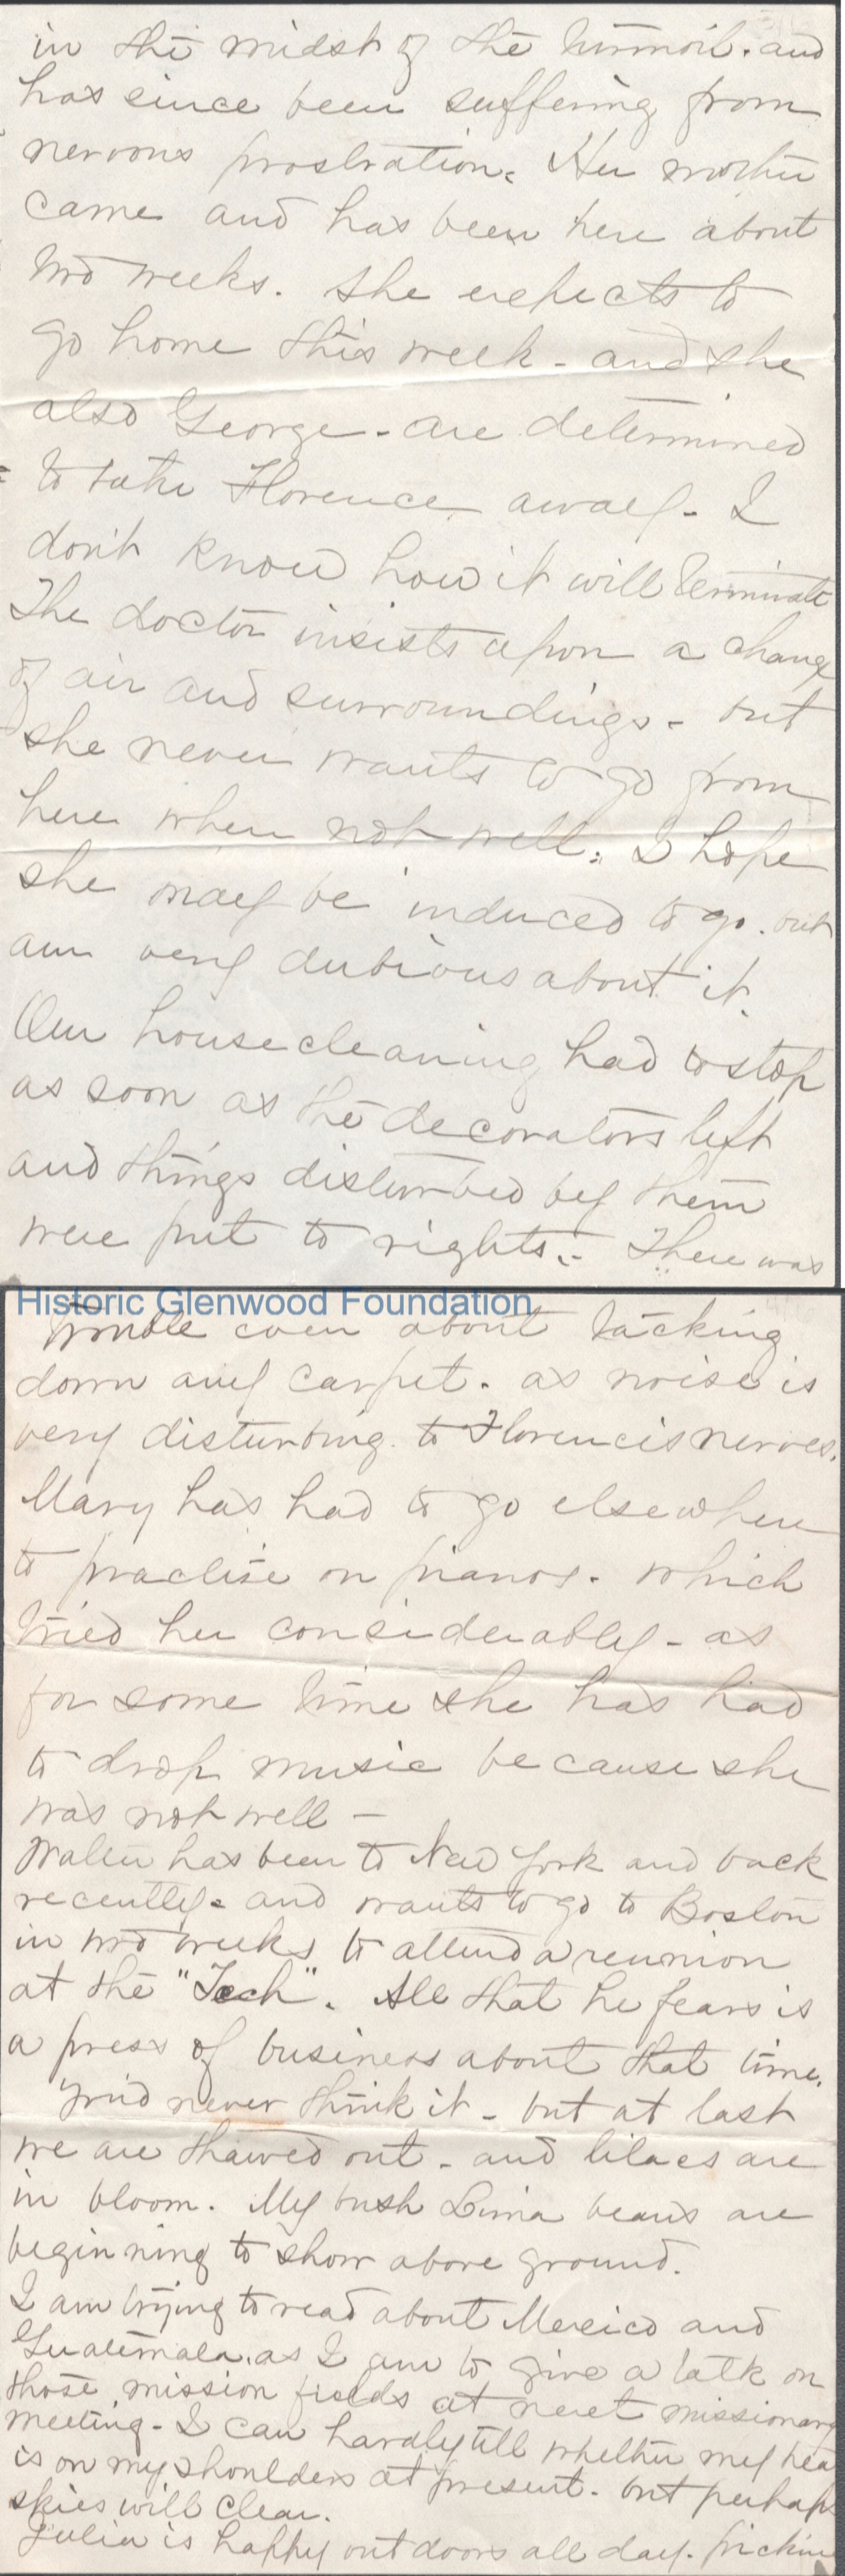 in the midst of the turmoil. and
has since been suffering from
nervous prostration. Her mother
came and has been here about
two weeks. She expects to
go home this week - and she
also George - are determined
to take Florence away - I
don't know how it will terminate
The doctor insists upon a change
of air and surroundings - but
she never wants to go from
here when not well. I hope
she may be induced to go. but
am very dubious about it.
Our housecleaning had to stop
as soon as the decorators left
and things disturbed by them
were put to rights. - There was
Historic Glenwood Foundation
trouble even about tacking
down any carpet. as noise is
very disturbing to Florence's nerves.
Mary has had to go elsewhere
to practise on pianos. which
tried her considerably - as
for some time she has had
to drop music because she
was not well -
Walter has been to New York and back
recently - and wants to go to Boston
in two weeks to attend a reunion
at the "Tech". All that he fears is
a press of business about that time.
You'd never think it - but at last
we are thawed out - and lilacs are
in bloom. My bush Lima beans are
beginning to show above ground.
I am trying to read about Mexico and
Guatemala, as I am to give a talk on
those mission fields at next missionary
meeting - I can hardly tell whether my hea
is on my shoulders at present. but perhaps
skies will clear.
Julia is happy out doors all day. pickin